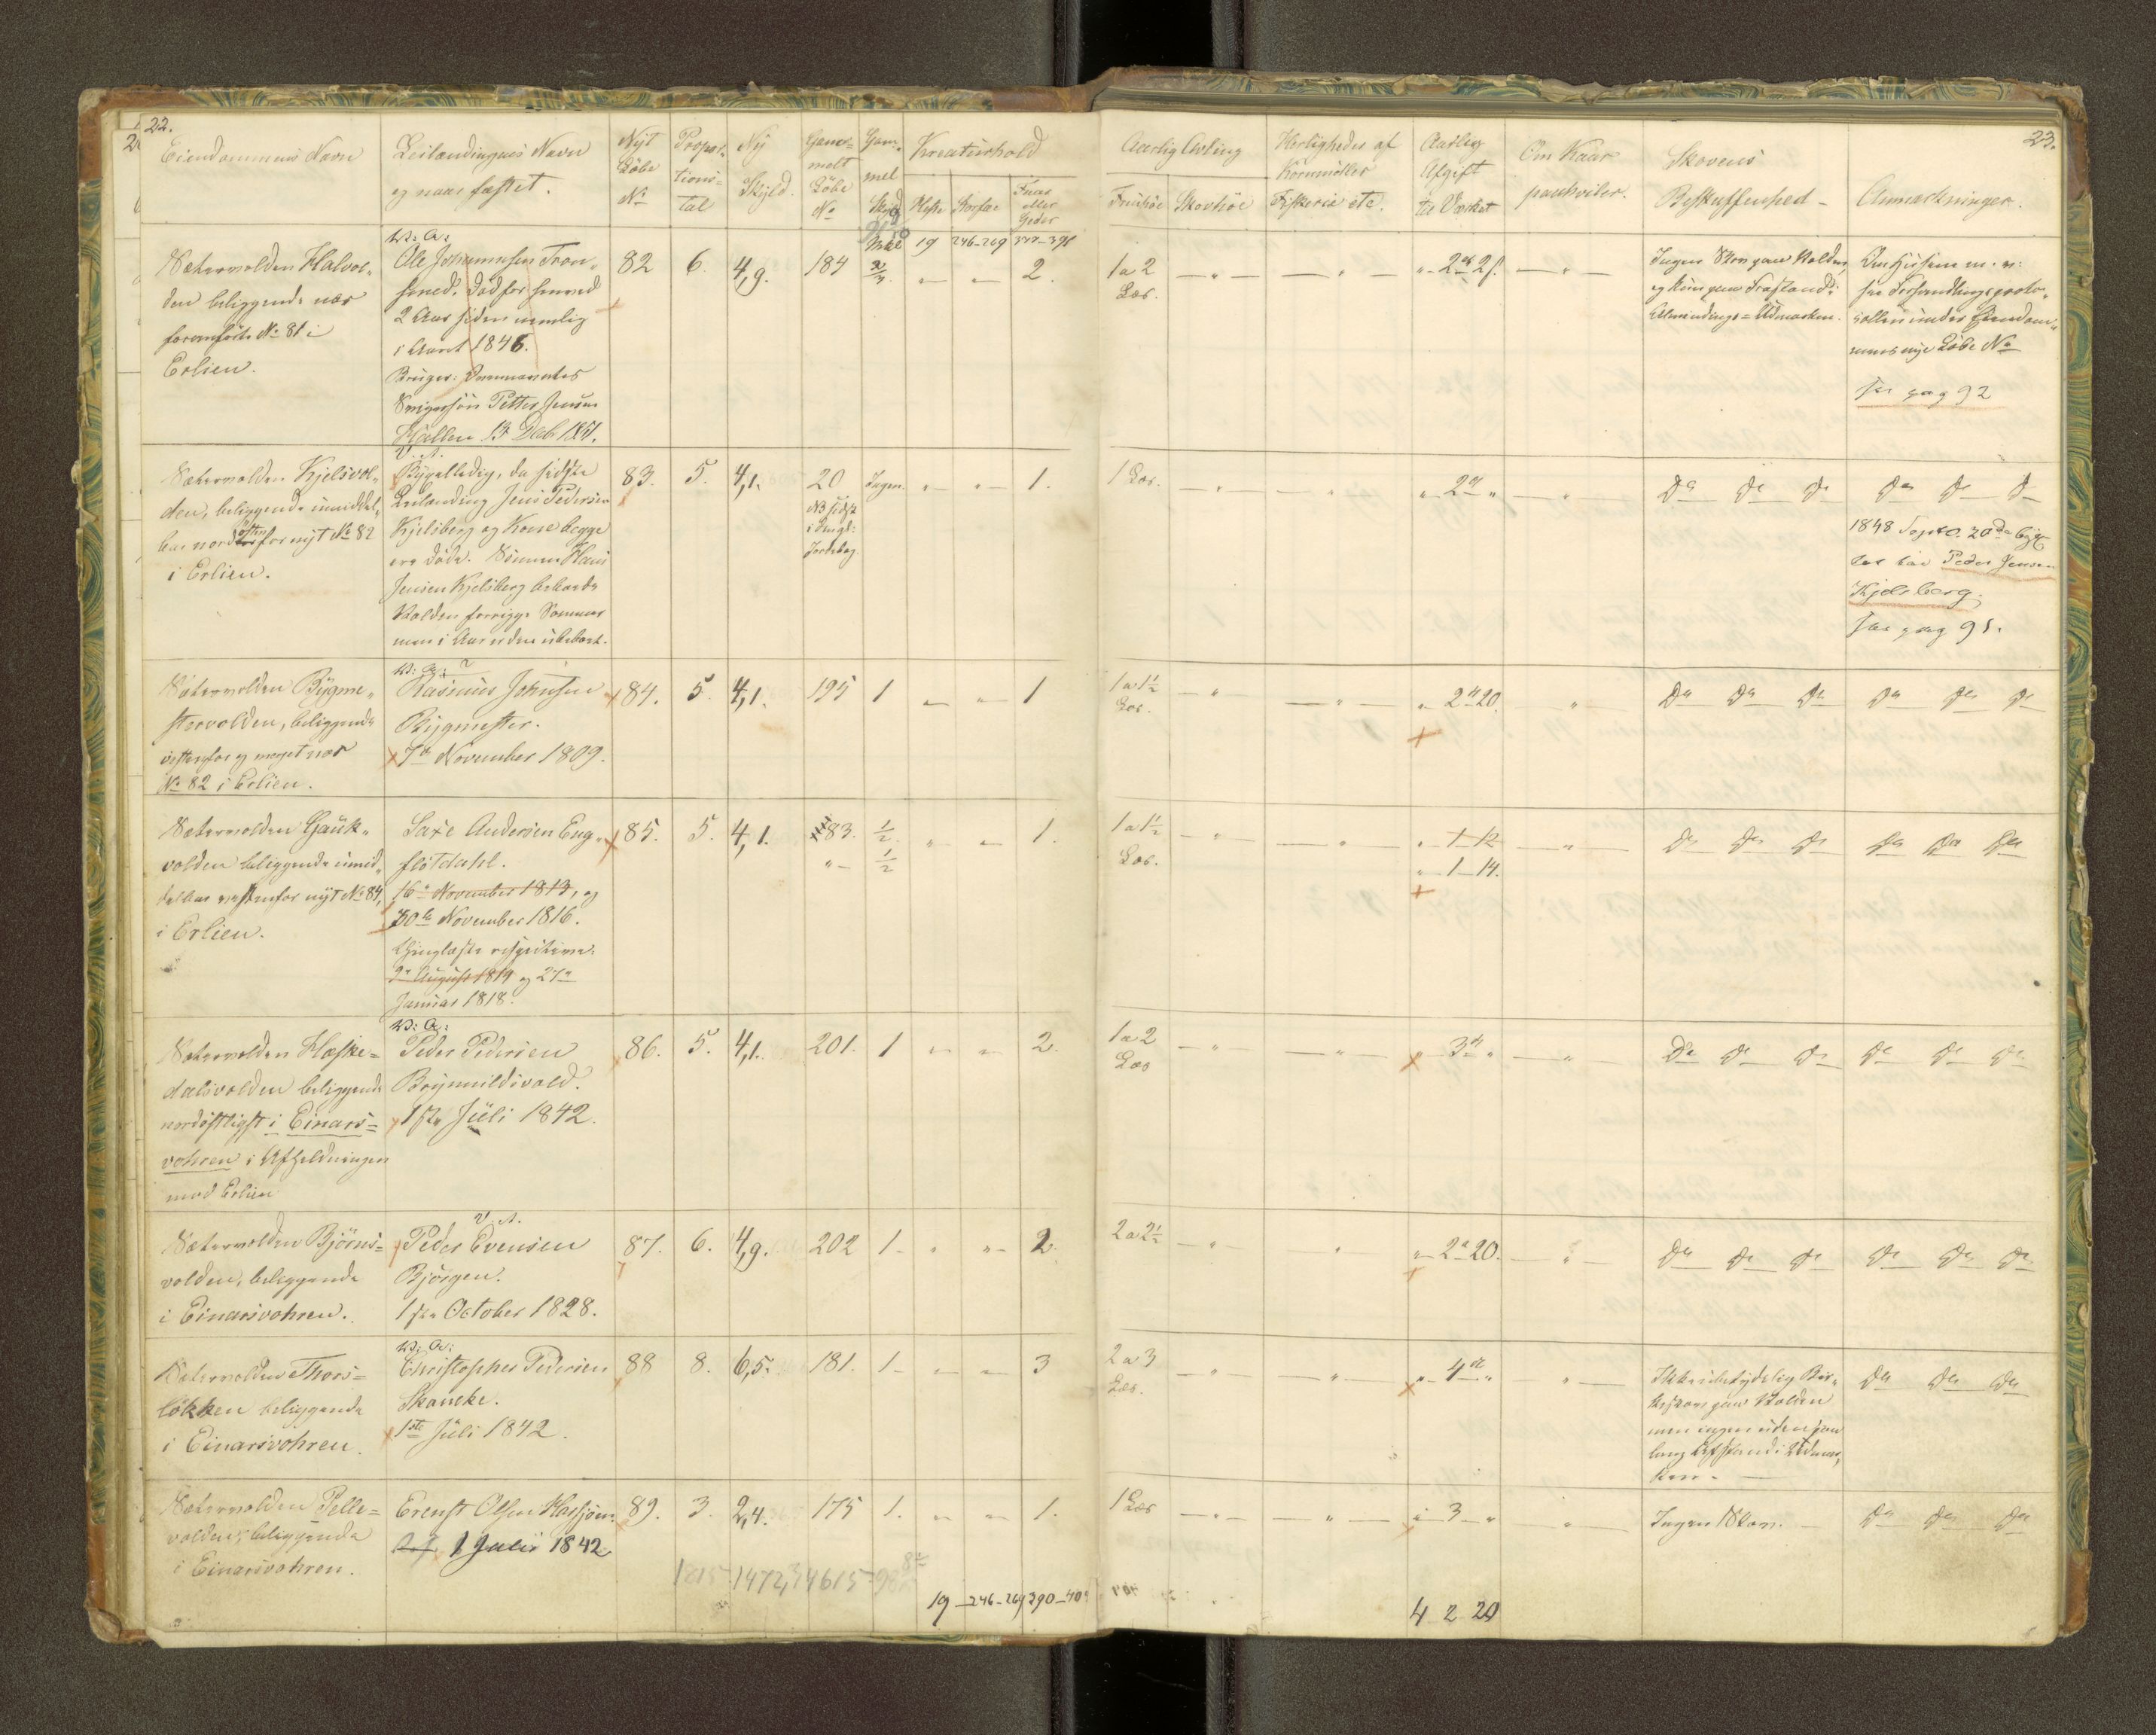 22.
Eiendommens Navn
Leilændingens Navn
og naar fæstet.
Nyt
Løbe
No
Propor-
tions-
tal
Ny
Skyld.
Gamelt
Løbe
No
Gam-
mel
Skyld
Kreaturhold
Heste Storfæ Faar
eller
Geder
19 246-269
Sætervolden Halvol-
den beliggende nær
foranførte No 81 i
Erlien.
Ole Johannesen Tron-
2 Aar siden nemlig
i Aaret 1846.
Bruger:
Svigersøn Petter Jensen
82 6. 4,9. 184 2.
Sætervolden Kjelsvol-
den, beliggende umiddel-
bar nord for nyt No 82
i Erlien.
Bygselledig, da sidste
Leilænding Jens Pedersen
Kjelsberg og Kone begge
ere døde. Sønnen Hans
Jensen Kjelsberg
Volden forrige Sommer
men i Aar er den
83. 5. 4,1. 20 Ingen. 1.
NB sidst
i
Jordebog
Sætervolden Bygme-
stervolden, beliggende
vestenfor og meget nær
No 82 i Erlien.
Rasmus Johnsen
Bygmester.
7de November 1809.
84. 5. 4,1. 195 1 1
Sætervolden Gauk-
volden beliggende umid-
delbar vestenfor nyt No 84,
i Erlien.
Saxe Andersen Eng-
fløtdahl.
16de November 1813, og
30te November 1816.
Thinglæste
2de August 1814 og 27de
Januar 1818.
85. 5. 4,1. 183. 1/2 1.
1/2
Sætervolden Hæske-
dalsvolden beliggende
nordøstligst i Einars-
vohren i Afheldningen
mod Erlien
Peder Pedersen
Brynnildsvold.
1ste Juli 1842.
86. 5. 4,1. 201. 1 2.
Sætervolden Bjørns-
volden, beliggende
i Einarsvohren.
Peder Evensen
Bjørgen.
1ste October 1828.
87. 6. 4,9. 202 1 2.
Sætervolden Thors-
løkken beliggende
i Einarsvohren.
Christopher Pedersen
Skancke.
1ste Juli 1842.
88 8. 6,5. 181. 1 3
Sætervolden Pelle-
volden, beliggende
i Einarsvohren.
Erenst Olsen Hasjøn.
1 Juli 1842
89. 3. 2,4. 175 1. 1.
19 -246-269 390-40
23.
Aarlig Avling
Fruehøe Skovhøe
Herligheder af
Kornmøller
Fiskerie etc.
Aarlig
Afgift
til Værket
Om Kaar
paahviler.
Skovens
Beskaffenhed
Anmærkninger.
1 a 2
Læs.
Ingen Skov paa Volden,
Almindings-Udmarken.
see Forhandlingsproto-
collen under Eiendom-
mens nye Løbe No
see pag 92
1 Læs. 2
Do Do Do Do Do Do
1848 Septb. 20de byg-
Peder Jensen
Kjelsberg.
see pag 91.
1 a 1 1/2
Læs.
2 20.
Do Do Do Do Do Do
1 a 1 1/2
Læs.
1 12
1 14.
Do Do Do Do Do Do
1 a 2
Læs
3
Do Do Do Do Do Do
2 a 2 1/2
2 20.
Do Do Do Do Do Do
2 a 3
Læs.
4
Ikke ubetydelig Bir-
keskov paa Volden
men ingen uden paa
lang Afstand i Udmar-
ken.
Do Do Do
1 Læs
3
Ingen Skov.
Do Do Do
4 2 20